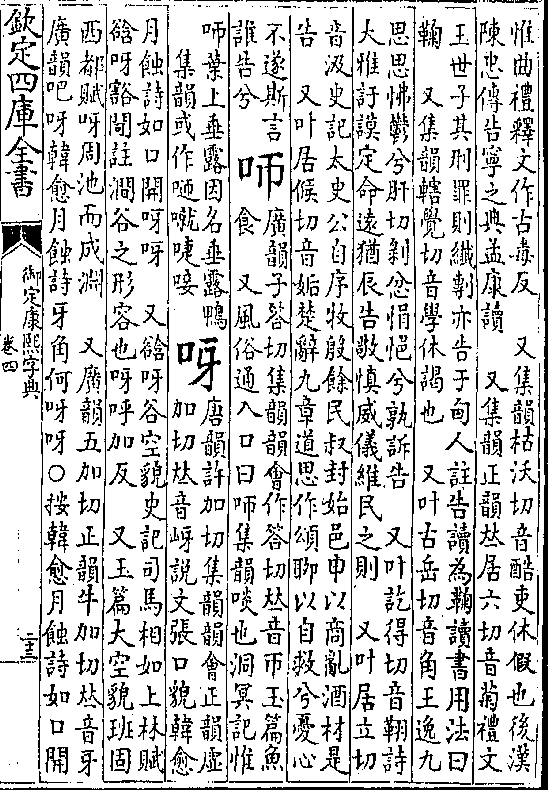 惟曲禮釋文作古毒反　又集韻枯沃切音酷吏休假也後漢
陳忠傳告寧之典益康讀　又集韻正韻𠀤居六切音菊禮文
王世子其刑罪則纖剸亦告于甸人註告讀為鞠讀書用法曰
鞠　又集韻轄覺切音學休謁也　又叶古岳切音角王逸九
思思怫鬱兮肝切剝忿悁悒兮孰訴告　又叶訖得切音鞫詩
大雅訏謨定命遠猶辰告敬慎威儀維民之則　又叶居立切
音汲史記太史公自序牧殷餘民叔封始邑申以商亂酒材是
告　又叶居候切音姤楚辭九章道思作頌聊以自救兮憂心
不遂斯言
誰告兮　𠯗　廣韻子答切集韻韻會作答切𠀤音帀玉篇魚
食　又風俗通入口曰𠯗集韻啖也洞冥記惟
𠯗葉上垂露因名垂露鴨
集韻或作噆噈啑唼　呀　唐韻許加切集韻韻會正韻虛
加切𠀤音岈說文張口貌韓愈
月蝕詩如口開呀呀　又谽呀谷空貌史記司馬相如上林賦
谽呀豁閕註澗谷之形容也呀呼加反　又玉篇大空貌班固
西都賦呀周池而成淵　又廣韻五加切正韻牛加切𠀤音牙
廣韻吧呀韓愈月蝕詩牙角何呀呀○按韓愈月蝕詩如口開
欽定四庫全書
御定康熙字典
卷四
二十三